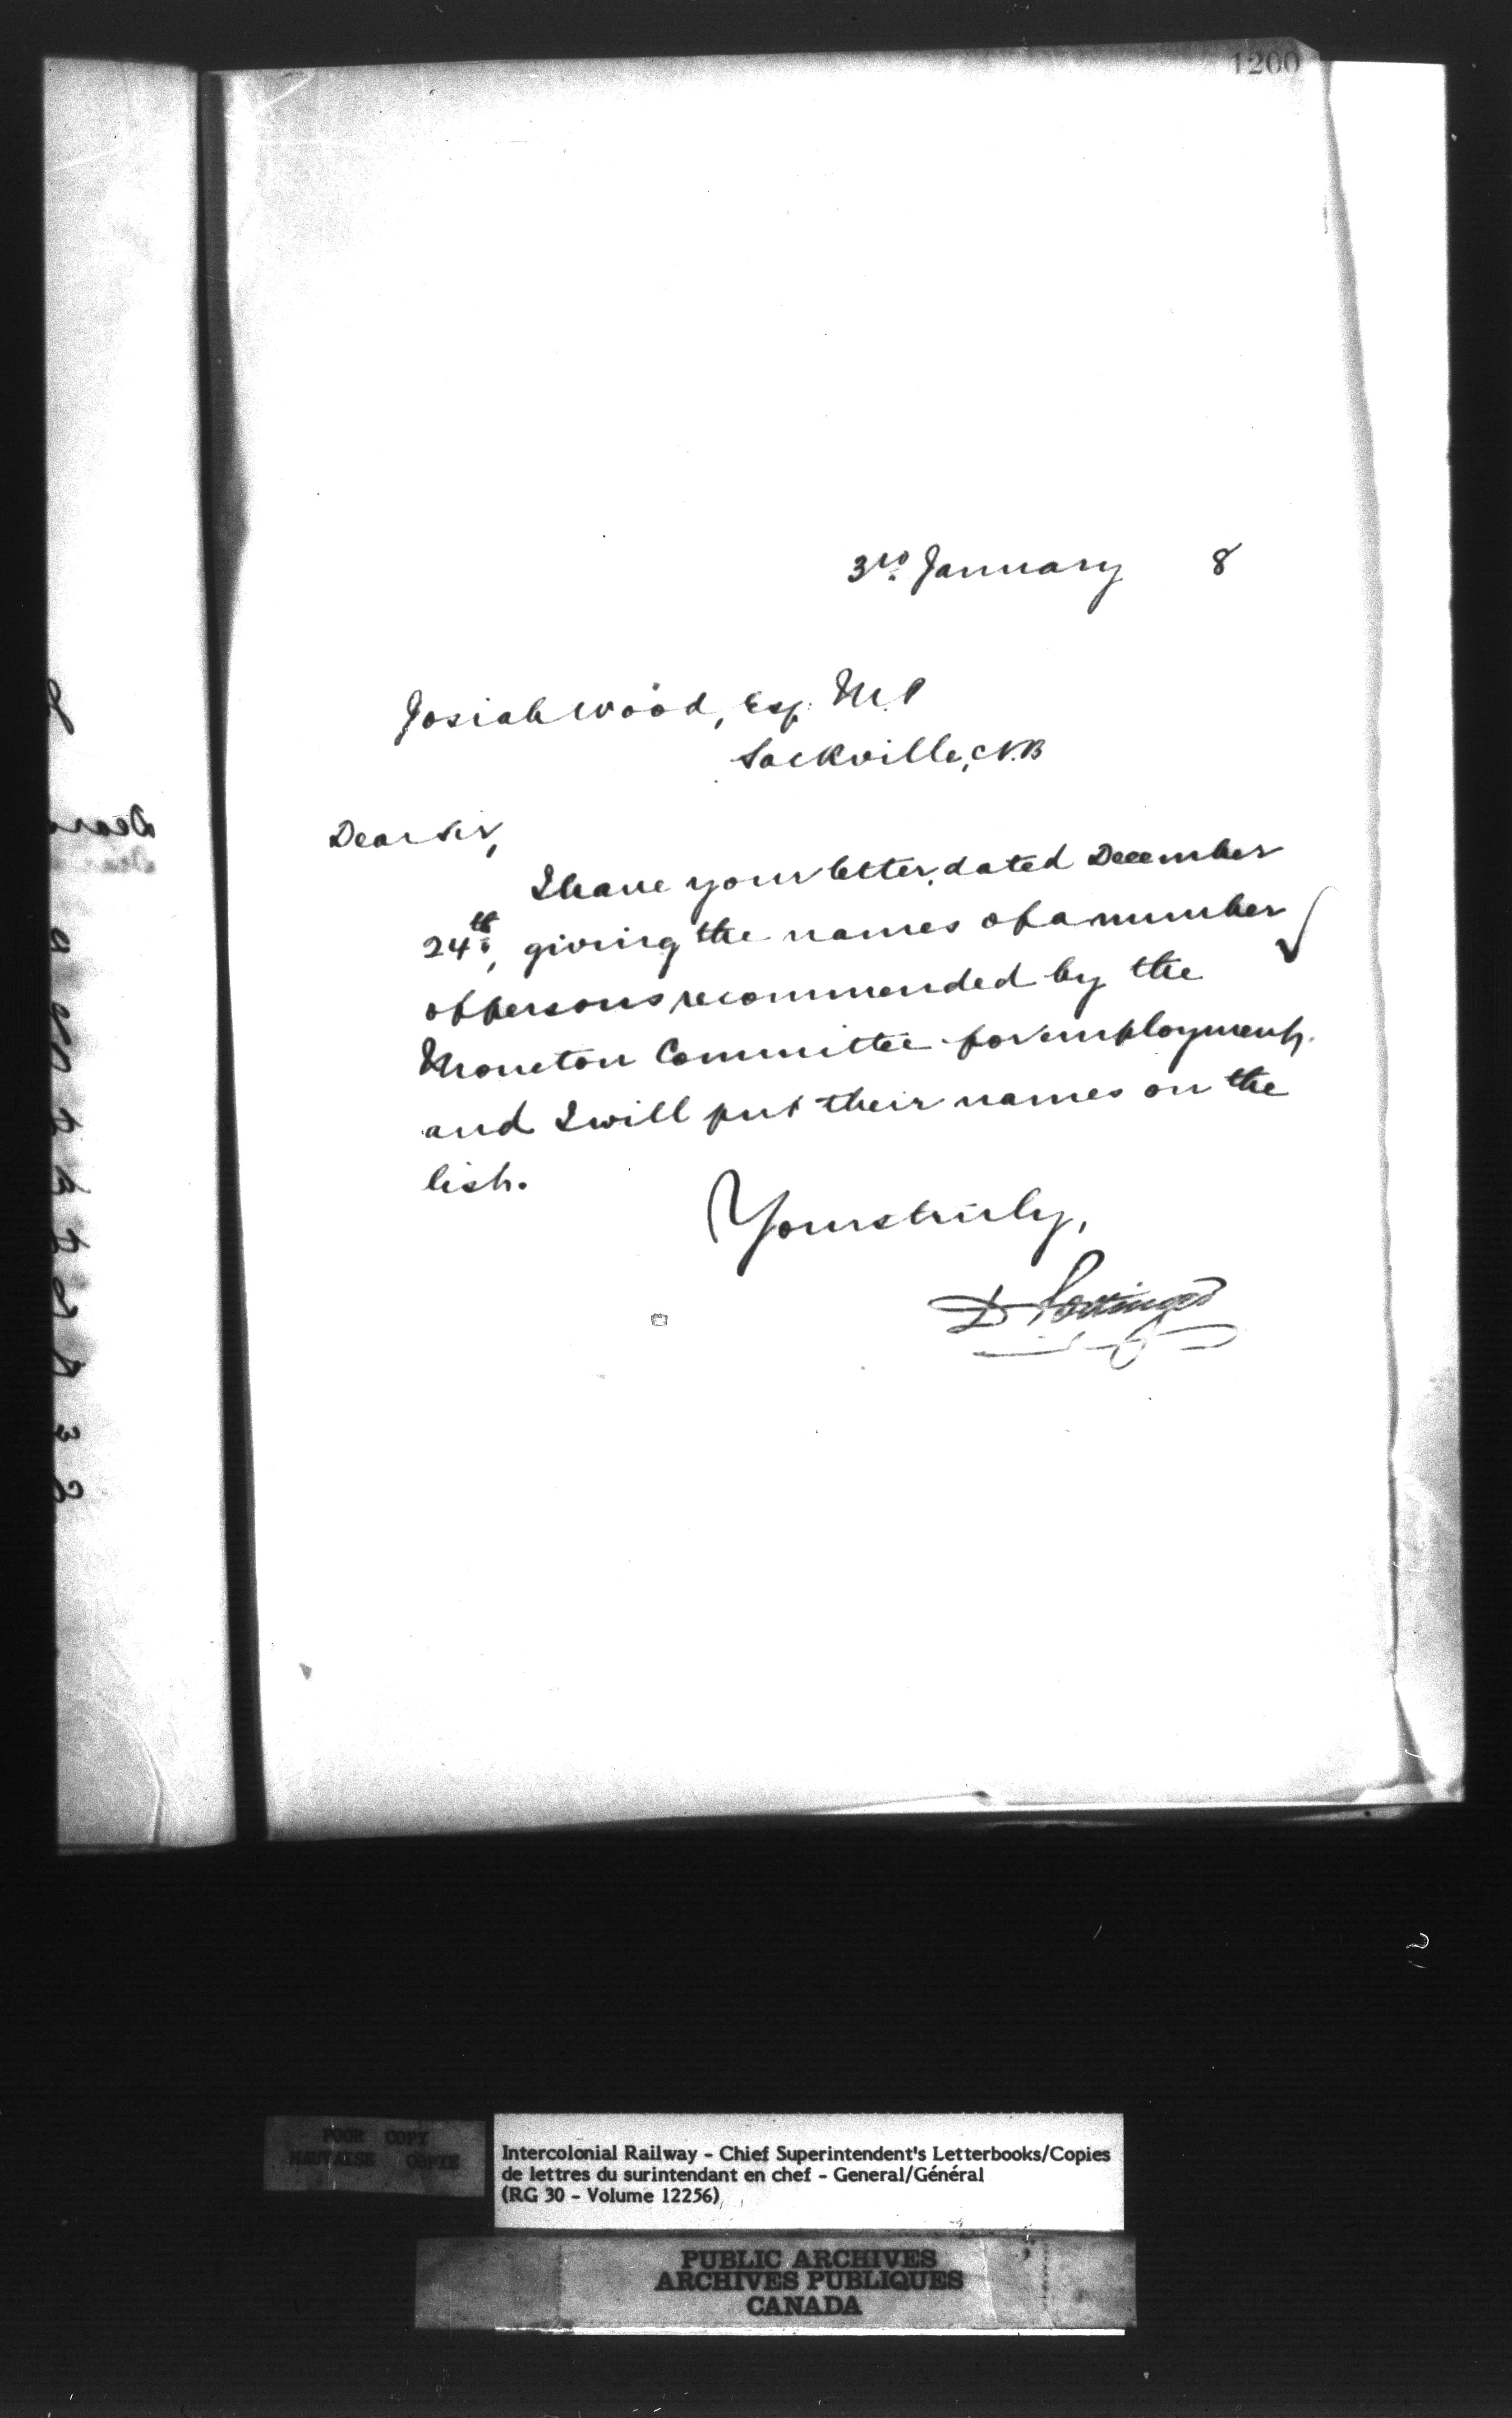 1200
3rd January 8
Josiah Wood, Esq. M.P
Sackville, N.B
Dear Sir,
I have your letter, dated December
24th, giving the names of a number
of persons recommended by the
Moncton Committee for employment,
and I will put their names on the
list.
Yours truly,
D Pottinger
Dear
POOR COPY
MAUVAISE COPIE
Intercolonial Railway - Chief Superintendent's Letterbooks/Copies
de lettres du surintendant en chef - General/Général
(RG 30 - Volume 12256)
PUBLIC ARCHIVES
ARCHIVES PUBLIQUES
CANADA